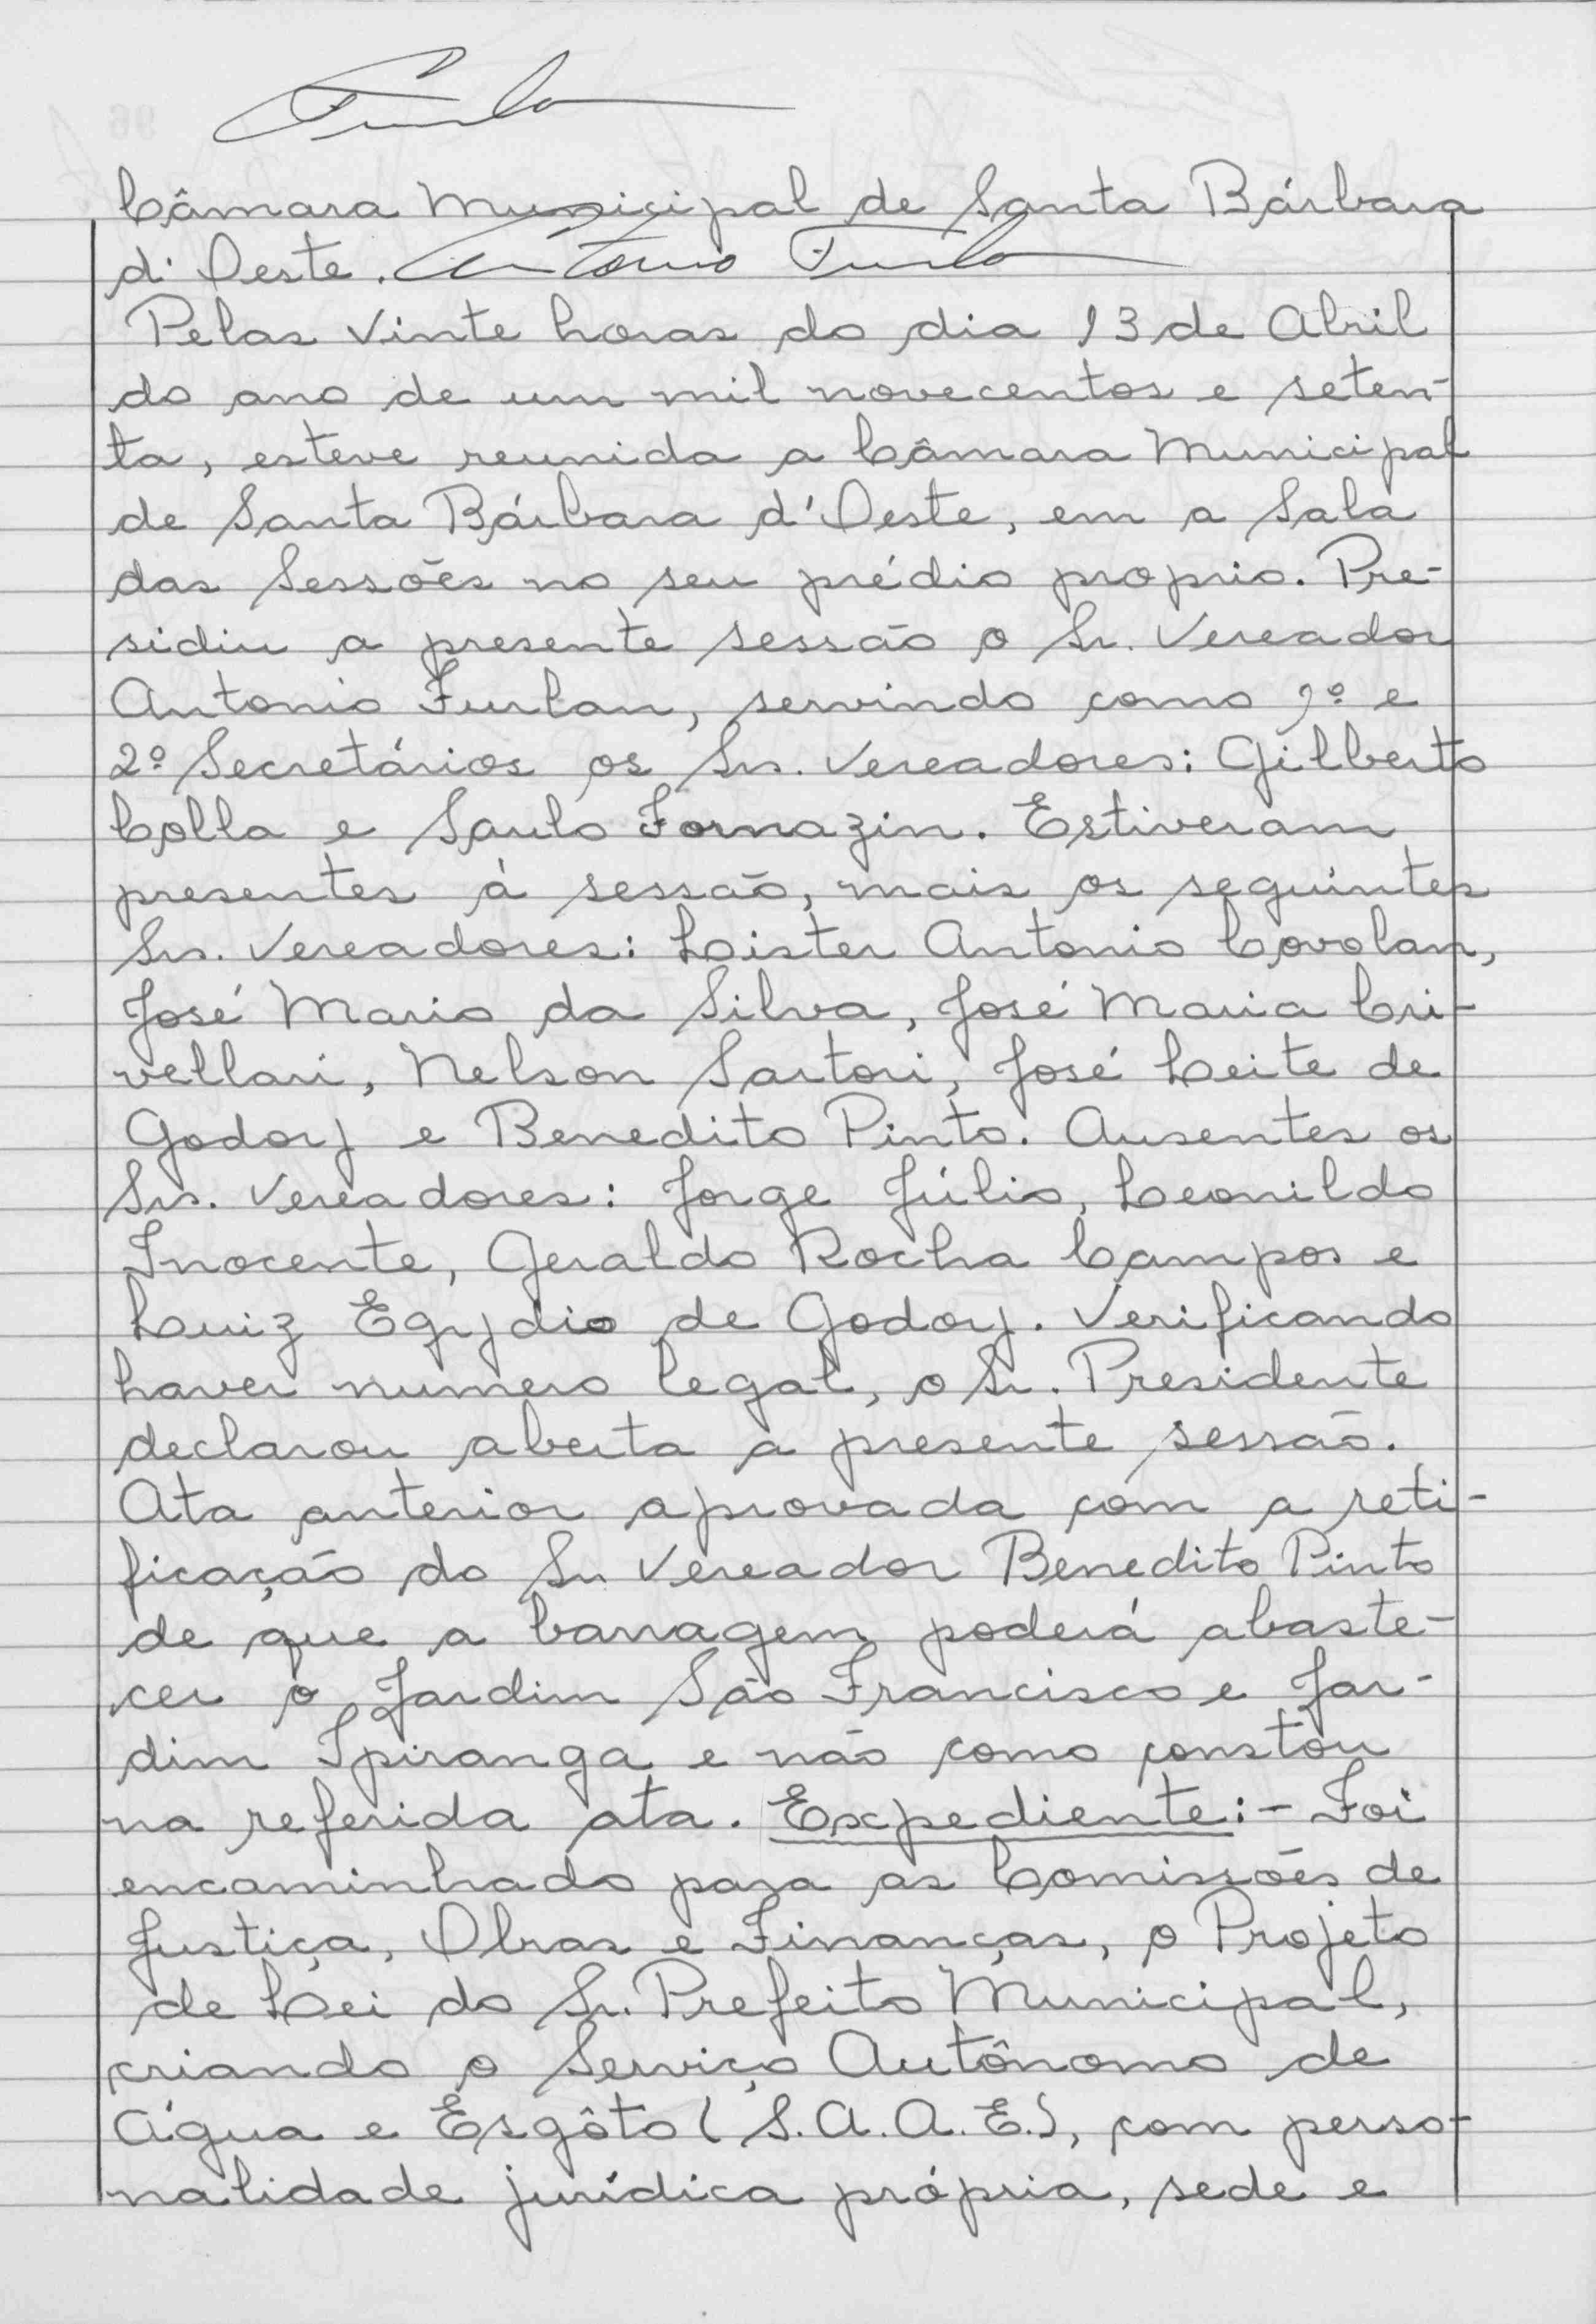 Furlan
Câmara Municipal de Santa Bárbara
d'Oeste. Antonio Furlan
Pelas Vinte horas do dia 13 de Abril
do ano de um mil novecentos e seten-
ta, esteve reunida a Câmara Municipal
de Santa Bárbara d'Oeste, em a Sala
das Sessões no seu prédio proprio. Pre-
sidiu a presente sessão o Sr. Vereador
Antonio Furlan, servindo como 1º e
2º Secretários os Srs. Vereadores: Gilberto
Colla e Saulo Fornazin. Estiveram
presentes à sessão, mais os seguintes
Srs. Vereadores: Lister Antonio Covolan,
José Mario da Silva, José Maria Cri-
vellari, Nelson Sartori, José Leite de
Godoy e Benedito Pinto. Ausentes os
Srs. Vereadores: Jorge Júlio, Leonildo
Inocente, Geraldo Rocha Campos e
Luiz Egydio de Godoy. Verificando
haver numero legal, o Sr. Presidente
declarou aberta a presente sessão.
Ata anterior aprovada com a reti-
ficação do Sr. Vereador Benedito Pinto
de que a barragem poderá abaste-
cer o Jardim São Francisco e Jar-
dim Ipiranga e não como constou
na referida ata. Expediente:- Foi
encaminhado para as Comissões de
Justiça, Obras e Finanças, o Projeto
de Lei do Sr. Prefeito Municipal,
criando o Serviço Autônomo de
Água e Esgôto (S.A.A.E.), com perso-
nalidade jurídica própria, sede e